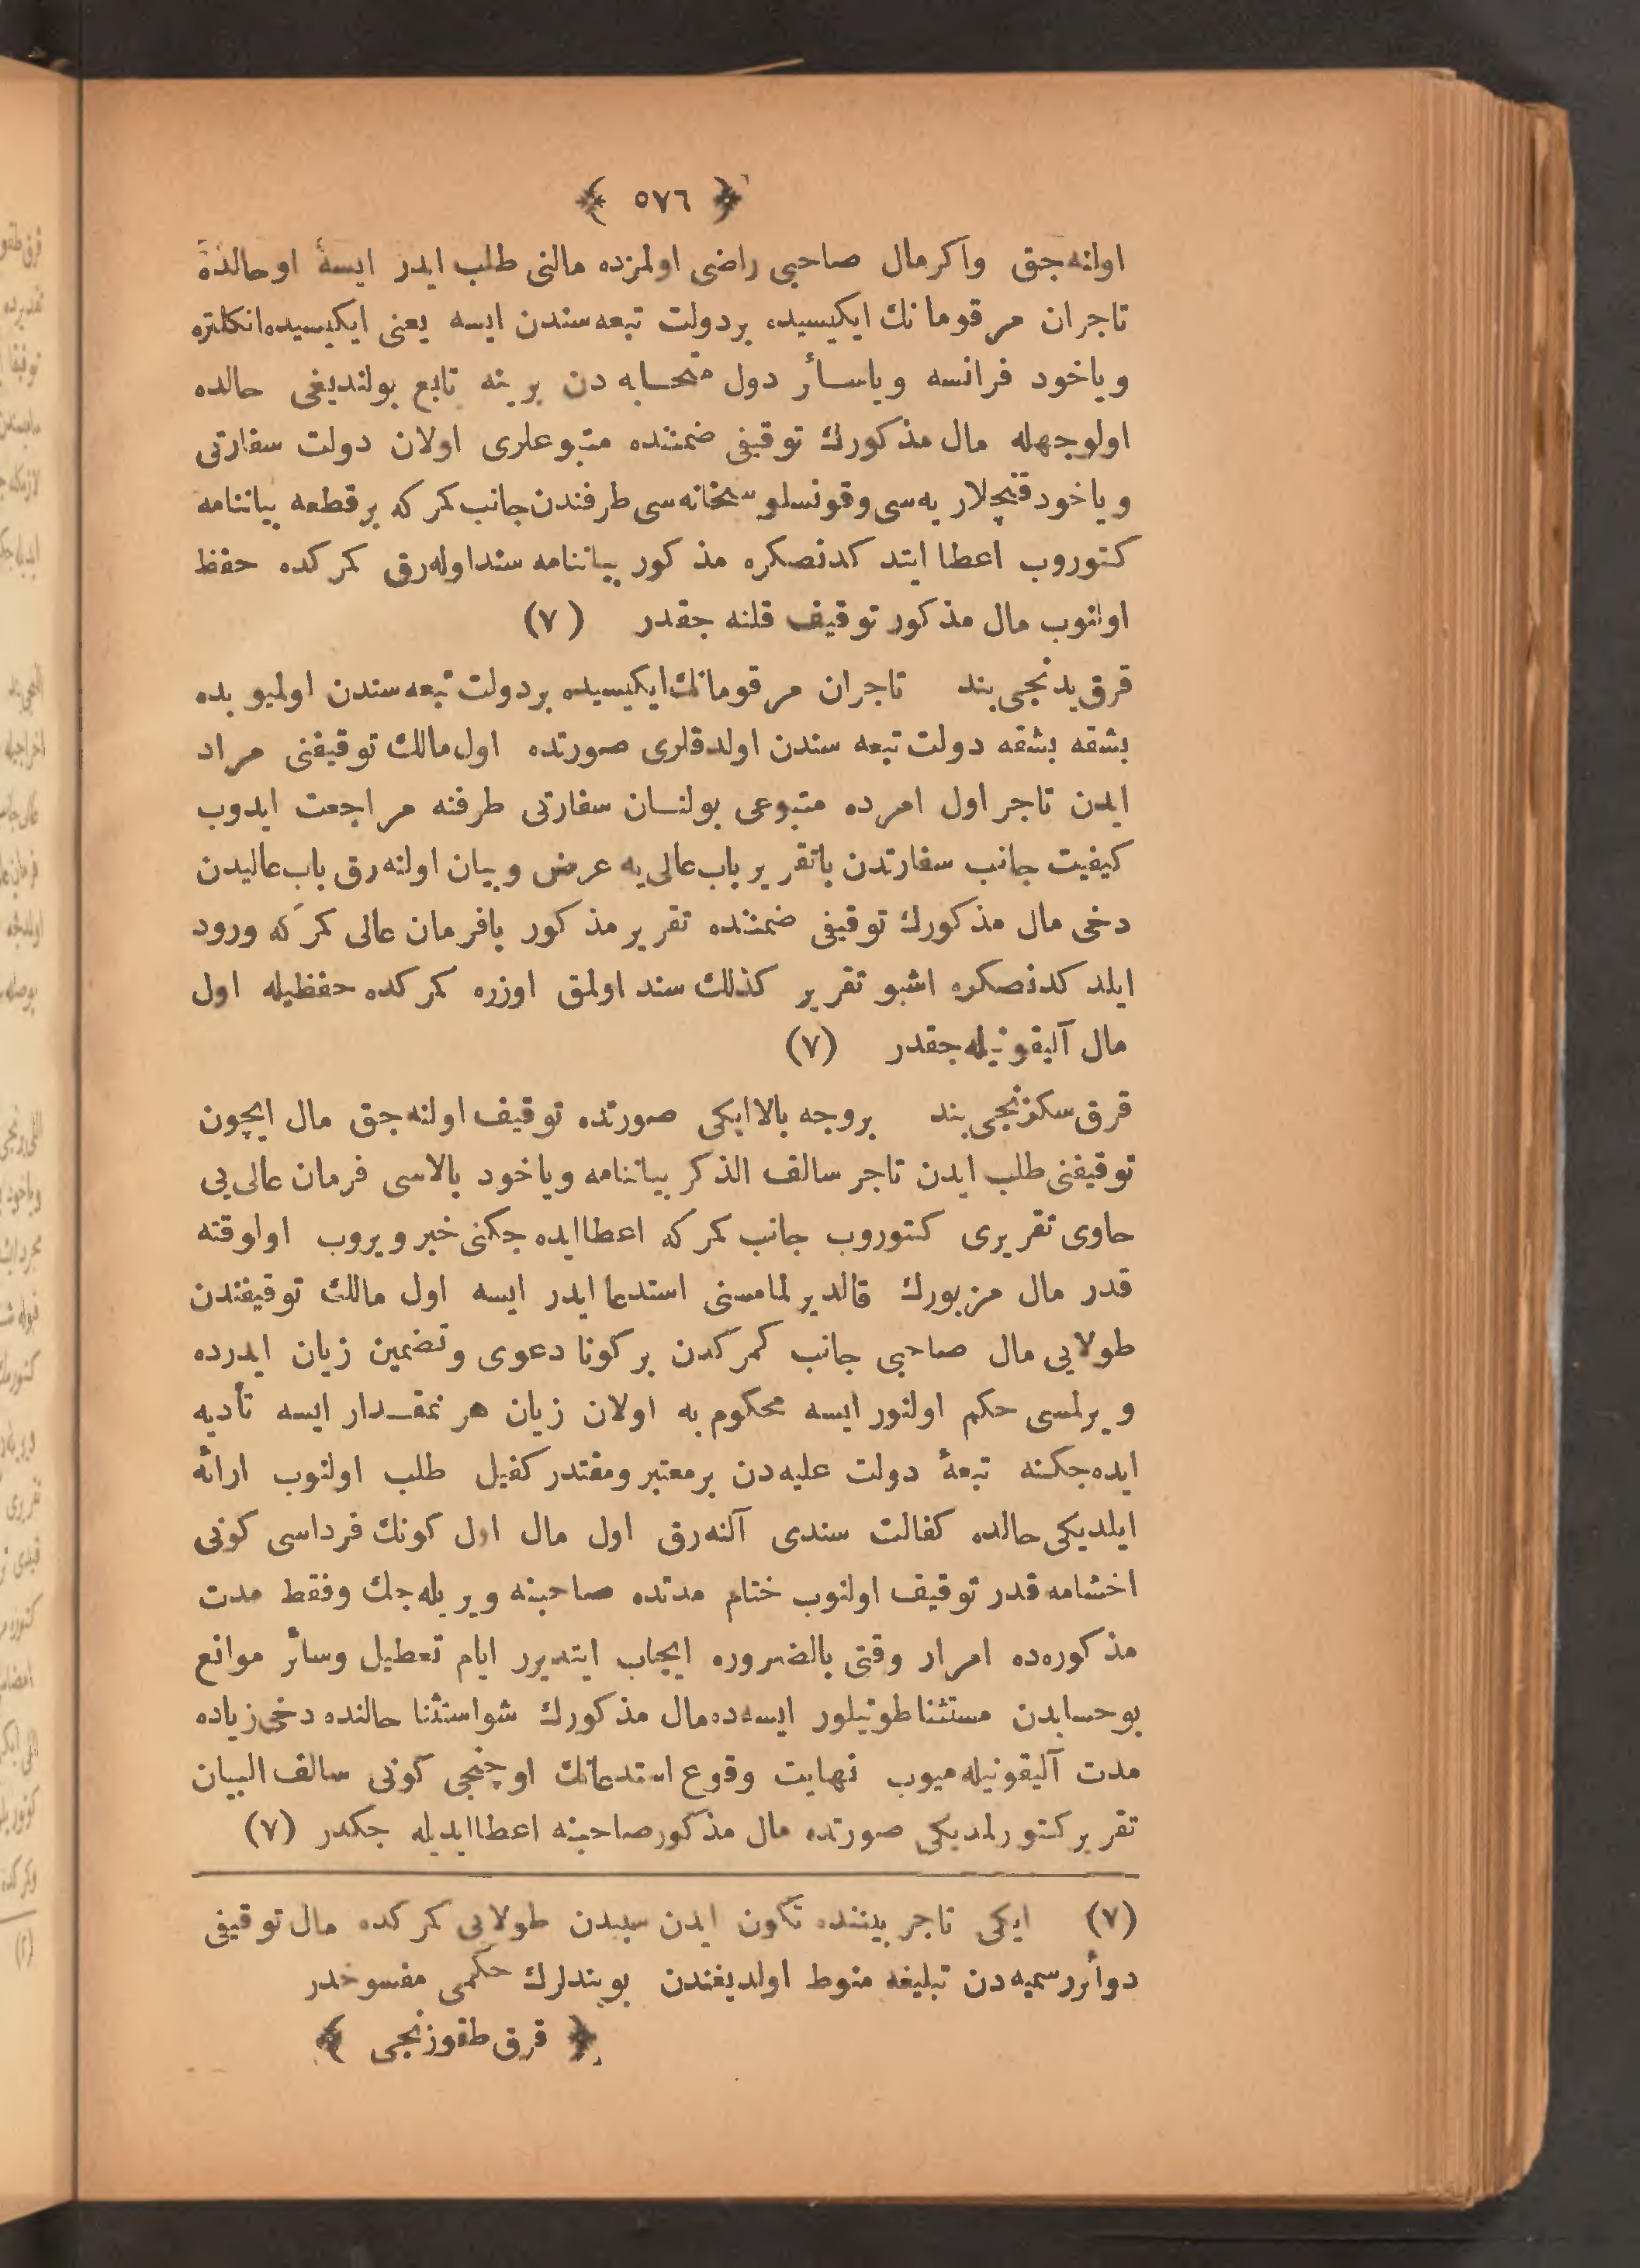 ﴿ ٥٧٦ ﴾
اولنه‌جق واكرمال صاحبى راضى اولمزده مالنى طلب ايدر ايسه اوحالده
تاجران مرقومانك ايكيسيده بردولت تبعه‌سندن ايسه يعنى ايكيسيده انكلتره
وياخود فرانسه وياسائر دول متحابه دن برينه تابع بولنديغى حالده
اولوجهله مال مذكورك توقيفى ضمننده متبوعلرى اولان دولت سفارتى
وياخود قنچلاريه‌سى وقونسلوسخانه‌سى طرفندن جانب كمركه برقطعه بياننامه
كتوروب اعطا ايتدكدنصكره مذكور بياننامه سنداوله‌رق كمركده حفظ
اولنوب مال مذكور توقيف قلنه جقدر (٧)
قرق يدنجى بند تاجران مرقومانك ايكيسيده بردولت تبعه‌سندن اولميوبده
بشقه بشقه دولت تبعه سندن اولدقلرى صورتده اول مالك توقيفنى مراد
ايدن تاجر اول امرده متبوعى بولنان سفارتى طرفنه مراجعت ايدوب
كيفيت جانب سفارتدن باتقرير باب‌عالى‌يه عرض وبيان اولنه‌رق باب‌عاليدن
دخى مال مذكورك توقيفى ضمننده تقرير مذكور بافرمان عالى كمركه ورود
ايلدكدنصكره اشبو تقرير كذلك سند اولمق اوزره كمركده حفظيله اول
مال آليقونيله‌جقدر (٧)
قرق سكزنجى بند بروجه بالا ايكى صورتده توقيف اولنه‌جق مال ايچون
توقيفنى طلب ايدن تاجر سالف الذكر بياننامه وياخود بالاسى فرمان عالى‌يى
حاوى تقريرى كتوروب جانب كمركه اعطاايده جكنى خبر ويروب اولوقته
قدر مال مزبورك قالديرلمامسنى استدعا ايدر ايسه اول مالك توقيفندن
طولايى مال صاحبى جانب كمركدن بركونا دعوى وتضمين زيان ايدرده
ويرلمسى حكم اولنور ايسه محكوم به اولان زيان هر نمقدار ايسه تأديه
ايده‌جكنه تبعۀ دولت عليه‌دن برمعتبر ومقتدر كفيل طلب اولنوب ارائه
ايلديكى حالده كفالت سندى آلنه‌رق اول مال اول كونك فرداسى كونى
اخشامه قدر توقيف اولنوب ختام مدتده صاحبنه ويريله‌جك وفقط مدت
مذكوره‌ده امرار وقتى بالضروره ايجاب ايتديرر ايام تعطيل وسائر موانع
بوحسابدن مستثنا طوتيلور ايسه‌ده مال مذكورك شواستثنا حالنده دخى زياده
مدت آليقونيله‌ميوب نهايت وقوع استدعانك اوچنجى كونى سالف البيان
تقرير كتورلمديكى صورتده مال مذكور صاحبنه اعطاايديله جكدر (٧)
(٧) ايكى تاجر بيننده تكون ايدن سببدن طولايى كمركده مال توقيفى
دوائررسميه‌دن تبليغه منوط اولديغندن بوبندلرك حكمى مفسوخدر
﴿ قرق طقوزنجى ﴾